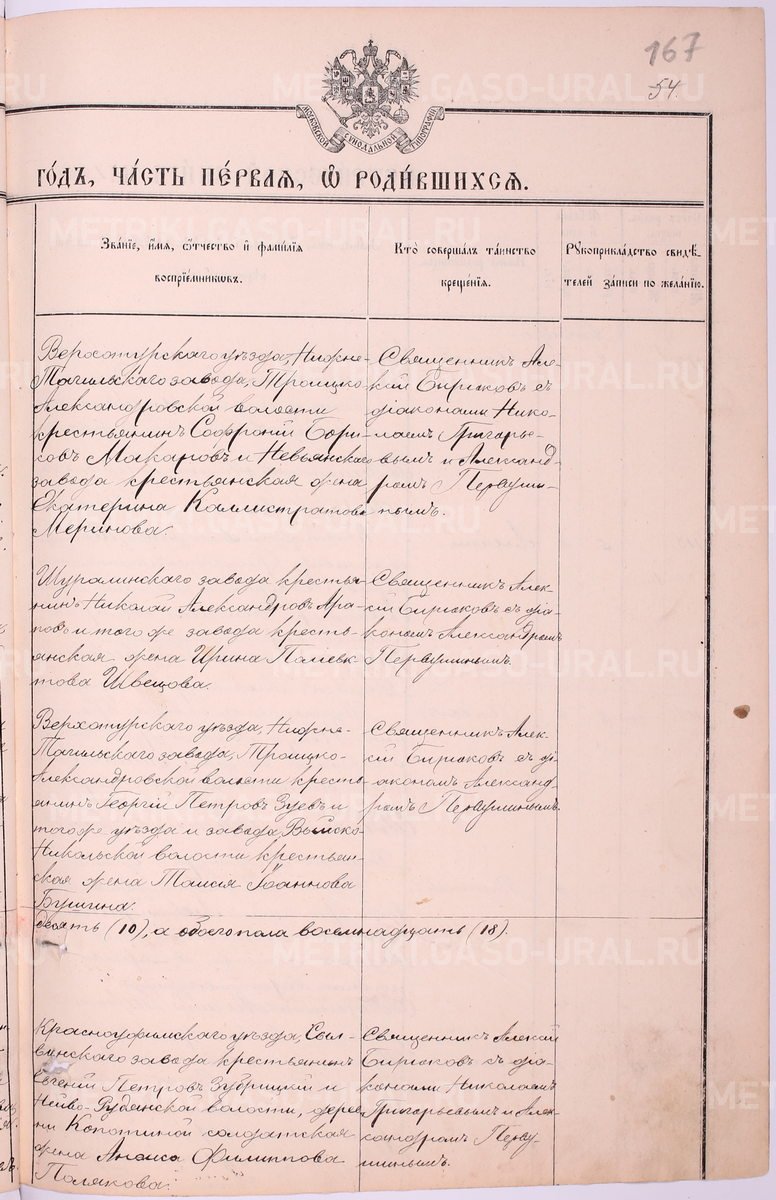 167
54.
МОСКОВСКОЙ СѴНОДАЛЬНОЙ ТИПОГРАФІИ
ГО́ДЪ, ЧА́СТЬ ПЕ́РВАЯ, Ѽ РОДИ́ВШИХСЯ.
Зва́нїе, и҆́мя, ѻ҆́тчество и҆ фами́лїя
воспрїе́мникѡвъ.
Кто̀ соверша́лъ та́инство
креще́нїя.
Рꙋкоприкла́дство свидѣ́-
телей за́писи по жела́нїю.
Верхотурскаго уѣзда, Нижне-
Тагильскаго завода, Троицко-
Александровской волости
крестьянинъ Софроній Бори-
совъ Макаровъ и Невьянскаго
завода крестьянская жена
Екатерина Каллистратова
Меринова.
Священникъ Але-
ксій Бирюковъ съ
діаконами Нико-
лаемъ Григорье-
вымъ и Александ-
ромъ Первуши-
нымъ.
Шуралинскаго завода крестья-
нинъ Николай Александровъ Ара-
повъ и того же завода кресть-
янская жена Ирина Полієвк-
това Швецова.
Священникъ Алек-
сій Бирюковъ съ діа-
кономъ Александромъ
Первушинымъ.
Верхотурскаго уѣзда, Нижне-
Тагильскаго завода, Троицко-
Александровской волости кресть-
янинъ Георгій Петровъ Зуевъ и
того же уѣзда и завода, Выйско-
Никольской волости крестьян-
ская жена Таисія Іоаннова
Бушина.
Священникъ Алек-
сій Бирюковъ съ ді-
акономъ Александ-
ромъ Первушинымъ.
десять (10), а обоего пола восемнадцать (18).
Красноуфимскаго уѣзда, Сыл-
винскаго завода крестьянинъ
Евгеній Петровъ Зубрицкій и
Нейво-Рудянской волости, дерев-
ни Копотиной солдатская
жена Анисія Филиппова
Полякова.
Священникъ Алексій
Бирюковъ съ діа-
конами Николаемъ
Григорьевымъ и Алек-
сандромъ Перву-
шинымъ.
METRIKI.GASO-URAL.RU